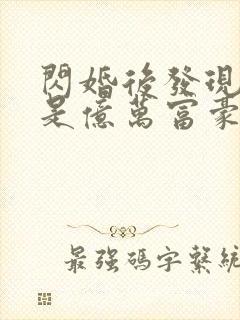 閃婚後發現
是億萬富豪
最強碼字繫統